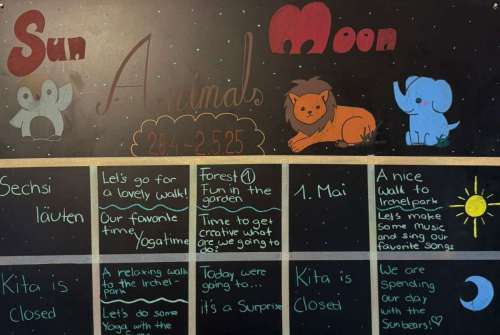 Sun
Moon
Animals
28.4 - 2.5.25
Sechsi
läuten
Let's go for
a lovely walk!
Our favorite
time
Yogatime
Forest ①
Fun in the
garden
Time to get
creative what
are we going to
do?
1. Mai
A nice
walk to
Irchelpark
Let's make
some music
and sing our
favorite songs
Kita is
Closed
A relaxing walk
to the Irchel-
park
Let's do some
Yoga with the
Today were
going to...
it's a Surprise
Kita is
Closed
We are
spending
our day
with the
Sunbears♡